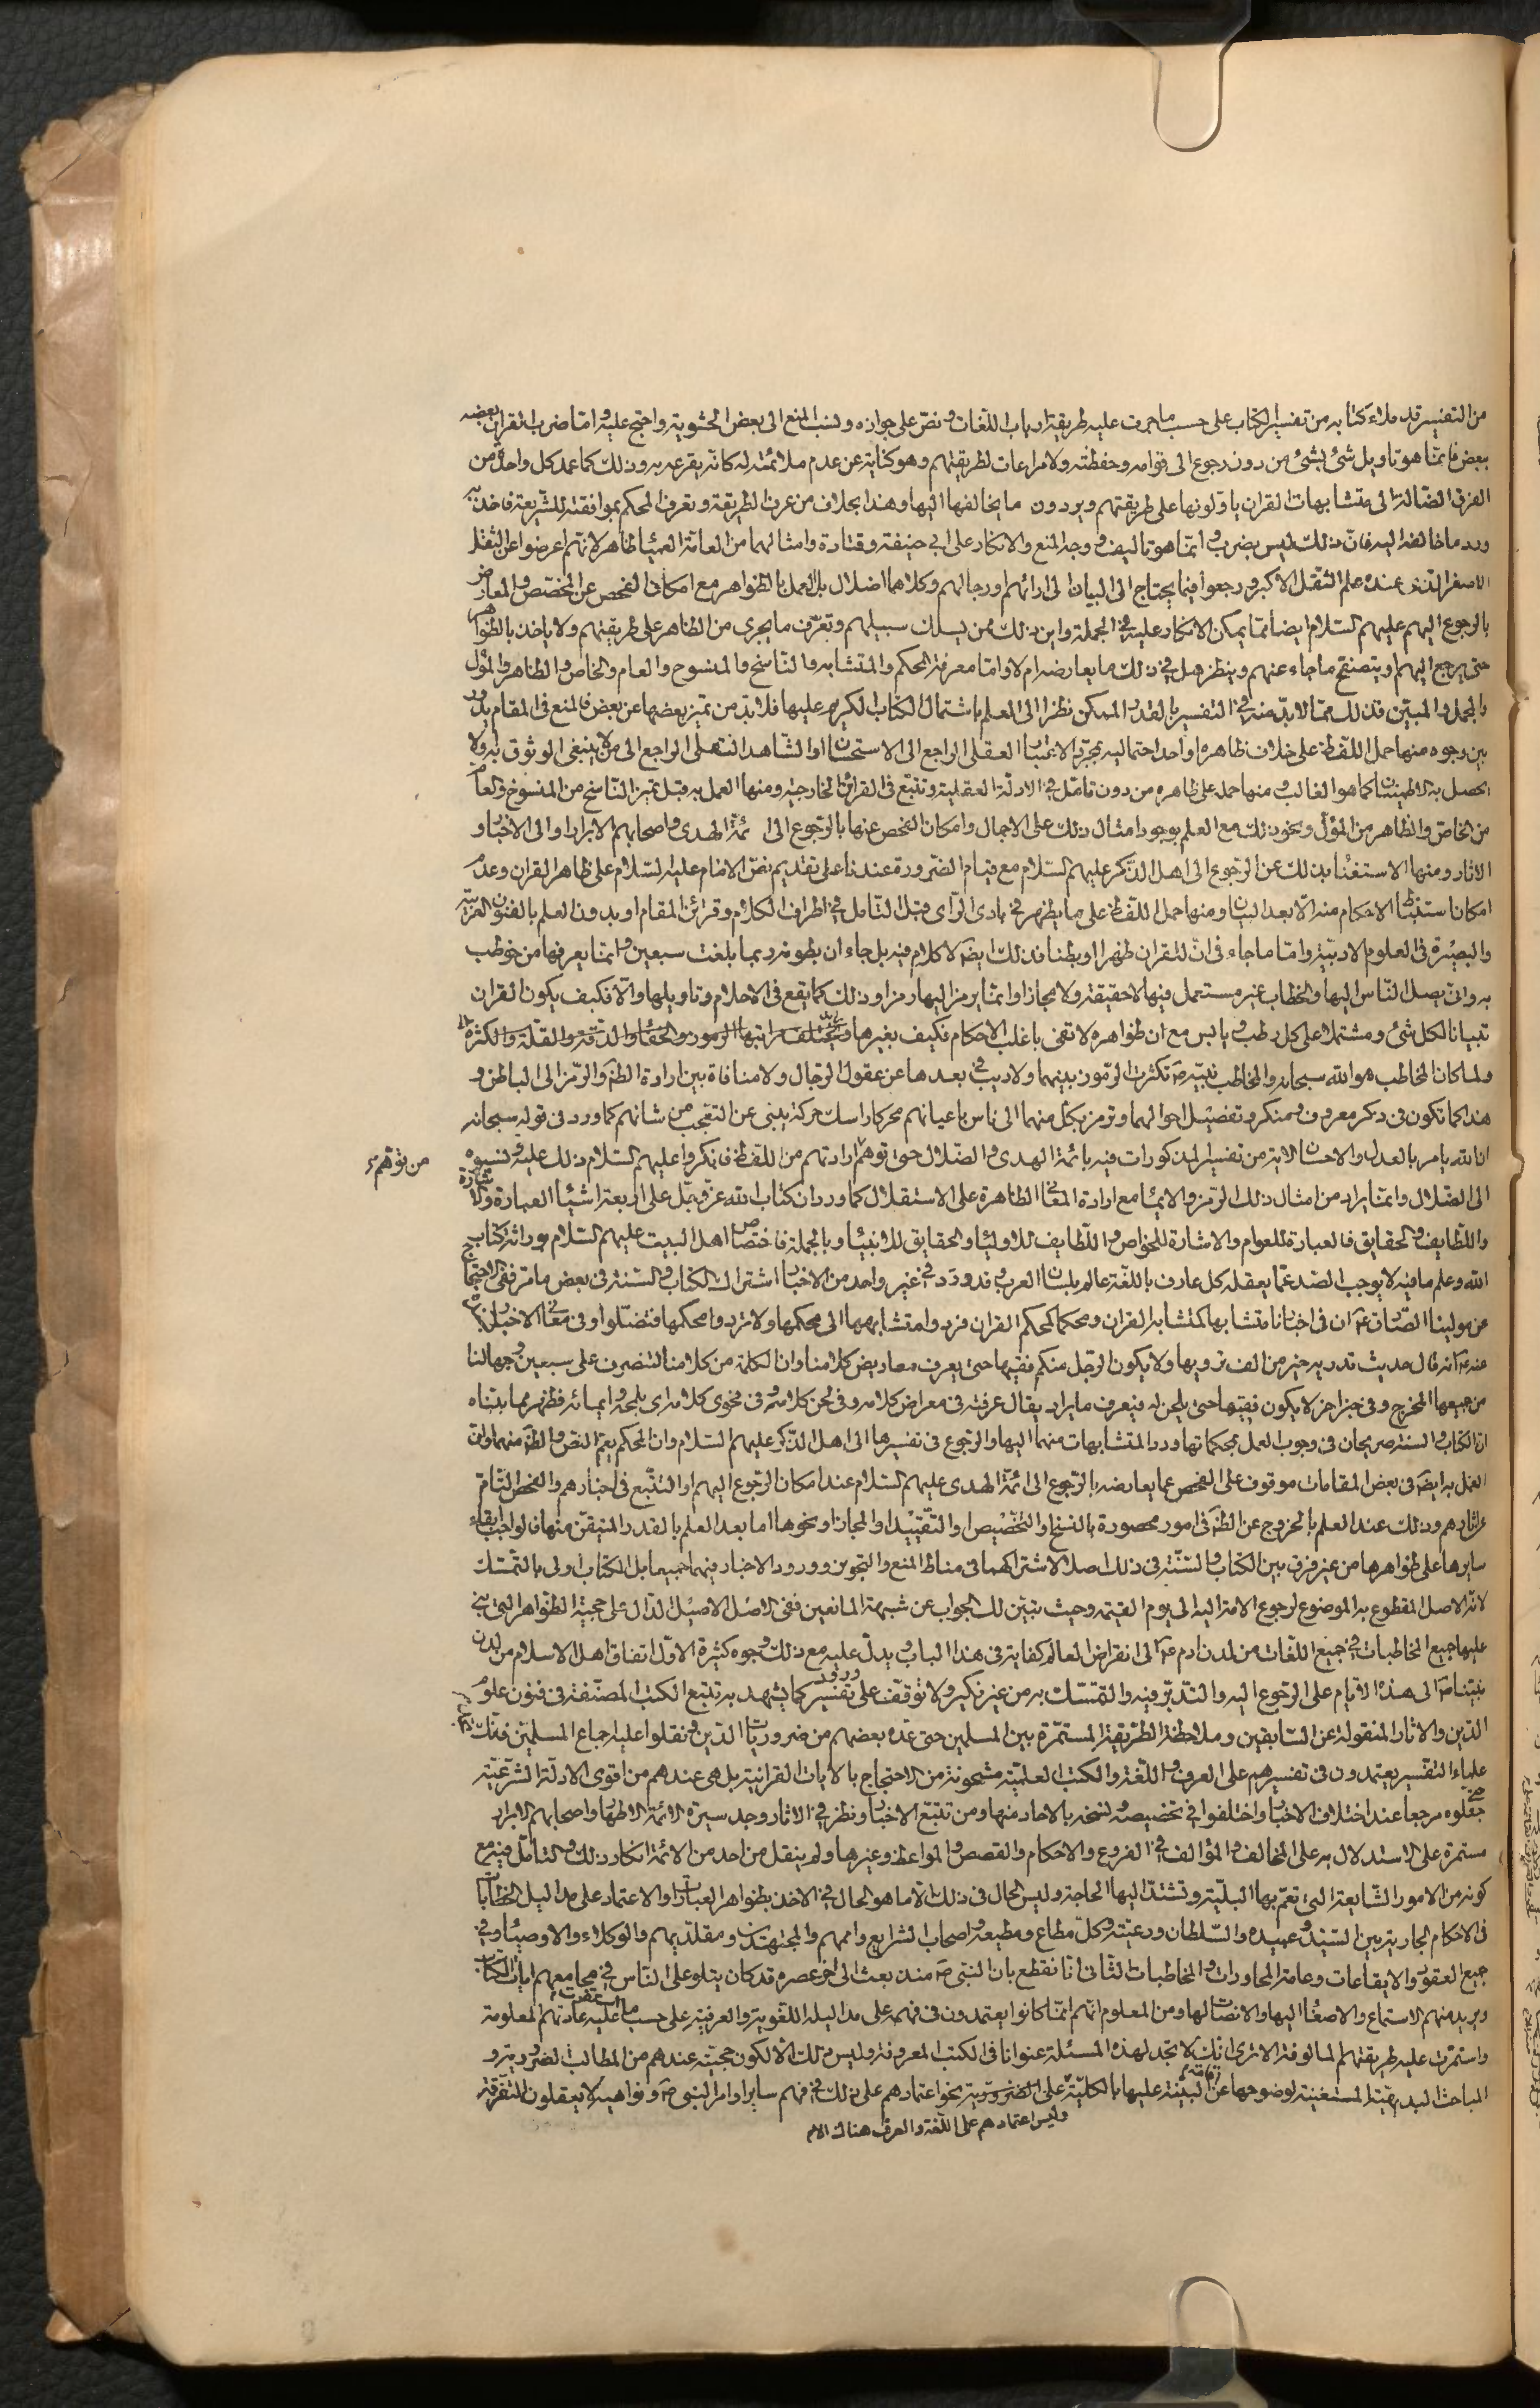 من التفسير قد ملاء كتابه من تفسير الكتاب على حسب ما جرت عليه طريقة ارباب اللغات و نص على جوازه و نسب المنع الى بعض الحشوية واحتج عليه و اما ضرب القران بعضه
ببعض فانما هو تاويل شئ بشئ من دون رجوع الى قوامه وحفظته ولا مراعات لطريقتهم وهو كناية عن عدم ملائمته له كانه يقرعه به وذلك كما عمد كل واحد من
الفرق الضالة الى متشابهات القران ياولونها على طريقتهم ويردون ما يخالفها اليها وهذا بخلاف من عرف الطريقة وتعرف المحكم بموافقته للشريعة فاخذ به
ورد ما خالفه اليه فان ذلك ليس بضرب و انما هو تاليف و وجه المنع والانكار على ابي حنيفة وقتادة وامثالهما من العامة العمياء ظاهر لانهم اعرضوا عن الثقل
الاصغر الذي عنده علم الثقل الاكبر ورجعوا فيما يحتاج الى البيان الى ارائهم ورجالهم وكلاهما ضلال بل العمل بالظواهر مع امكان الفحص عن المخصص والمعارض
بالرجوع اليهم عليهم السلام ايضا مما يمكن الانكار عليه في الجملة واين ذلك ممن يسلك سبيلهم وتعرف ما يجرى من الظاهر على طريقتهم ولا ياخذ بالظواهر
حتى يرجع اليهم او يتصفح ما جاء عنهم وينظر هل في ذلك ما يعارضه ام لا واما معرفة المحكم والمتشابه والناسخ والمنسوخ والعام والخاص والظاهر والمؤل
والمجمل والمبين فذلك مما لا بد منه في التفسير بالقدر الممكن نظرا الى العلم باشتمال الكتاب الكريم عليها فلا بد من تميز بعضها عن بعض فالمنع في المقام يدور
بين وجوه منها حمل اللفظ على خلاف ظاهره او احد احتماليه بمجرد الاعتبار العقلي الراجع الى الاستحسان او الشاهد النقلي الراجع الى من لا ينبغى الوثوق به ولا
يحصل به الاطمينان كما هو الغالب و منها حمله على ظاهره من دون تامل في الادلة العقلية وتتبع في القرائن الخارجية ومنها العمل به قبل تميز الناسخ من المنسوخ والعام
من الخاص والظاهر من المؤل ونحو ذلك مع العلم بوجود امثال ذلك على الاجمال وامكان الفحص عنها بالرجوع الى ائمة الهدى واصحابهم الابرار او الى الاخبار و
الاثار ومنها الاستغناء بذلك عن الرجوع الى اهل الذكر عليهم السلام مع قيام الضرورة عندنا على تقديم نص الامام عليه السلام على ظاهر القران وعدم
امكان استنباط الاحكام منه الا بعد البيان ومنها حمل اللفظ على ما يظهر في بادى الراى وقبل التامل في اطراف الكلام وقرائن المقام او بدون العلم بالفنون العربية
والبصيرة في العلوم الادبية واما ما جاء في ان للقران ظهرا وبطنا فذلك ايضا لا كلام فيه بل جاء ان بطونه ربما بلغت سبعين وانما يعرفها من خوطب
به وانى يصل الناس اليها والخطاب غير مستعمل فيها لا حقيقة ولا مجازا وانما يرمز اليها رمزا وذلك كما يقع في الاحلام وتاويلها والا فكيف يكون القران
تبيانا لكل شئ ومشتملا على كل رطب و يابس مع ان ظواهره لا تفى باغلب الاحكام فكيف بغيرها و تختلف مراتبها الرموز والخفاء والدقة والقلة والكثرة
ولما كان المخاطب هو الله سبحانه والمخاطب نبيه ص تكثرت الرموز بينهما ولا ريب في بعدها عن عقول الرجال ولا منافاة بين ارادة الظاهر والرمز الى الباطن و
هذا كما تكون في ذكر معروف و منكر وتفصيل احوالهما وترمز بكل منهما الى ناس باعيانهم محركا راسك حركة ينبى عن التعجب من شانهم كما ورد في قوله سبحانه
ان الله يامر بالعدل والاحسان الاية من تفسير المذكورات فيه بائمة الهدى والضلال حتى توهم ارادتهم من اللفظ فانكروا عليهم السلام ذلك عليه ونسبوه
من توهم
الى الضلال وانما يراد من امثال ذلك الرمز والايماء مع ارادة المعانى الظاهرة على الاستقلال كما ورد ان كتاب الله عز وجل على اربعة اشياء العبارة والاشارة
واللطايف والحقايق فالعبارة للعوام والاشارة للخواص واللطايف للاولياء والحقايق للانبياء وبالجملة فاختصاص اهل البيت عليهم السلام بوراثة كتاب
الله وعلم ما فيه لا يوجب الصد عما يعقله كل عارف باللغة عالم بلسان العرب وقد ورد في غير واحد من الاخبار اشتراك الكتاب والسنة في بعض ما مر ففى الاحتجاج
عن مولينا الصادق ع ان في اخبارنا متشابها كمتشابه القران ومحكما كمحكم القران فردوا متشابهها الى محكمها ولا تردوا محكمها فتضلوا وفي معانى الاخبار
عنه ع انه قال حديث تدريه خير من الف ترويها ولا يكون الرجل منكم فقيها حتى يعرف معاريض كلامنا وان الكلمة من كلامنا لتنصرف على سبعين وجها لنا
من جميعها المخرج وفي خبر اخر لا يكون فقيها حتى يلحن له فيعرف ما يراد يقال عرفته في معراض كلامه وفي لحن كلامه و في فحوى كلامه اى بلحنه وايمائه فظهر مما بيناه
ان الكتاب و السنة صريحان في وجوب العمل بمحكماتها ورد المتشابهات منهما اليها والرجوع في تفسيرها الى اهل الذكر عليهم السلام وان المحكم يعم النص والظاهر منهما وان
العمل به ايضا في بعض المقامات موقوف على الفحص عما يعارضه بالرجوع الى ائمة الهدى عليهم السلام عند امكان الرجوع اليهم او التتبع في اخبارهم والفحص التام
عن اثارهم وذلك عند العلم بالخروج عن الظاهر في امور محصورة بالنسخ والتخصيص والتقييد او المجاز او نحوها اما بعد العلم بالقدر المتيقن منها فالواجب ابقاء
سايرها على ظواهرها من غير فرق بين الكتاب والسنة في ذلك اصلا لاشتراكهما في مناط المنع والتجويز وورود الاخبار فيهما جميعا بل الكتاب اولى بالتمسك
لانه الاصل المقطوع به الموضوع لرجوع الامة اليه الى يوم القيمة وحيث تبين لك الجواب عن شبهة المانعين ففى الاصل الاصيل الدال على حجية الظواهر التي بنى
عليها جميع المخاطبات في جميع اللغات من لدن ادم ع الى انقراض العالم كفاية في هذا الباب ويدل عليه مع ذلك وجوه كثيرة الاول اتفاق اهل الاسلام من لدن
نبينا ص الى هذه الايام على الرجوع اليه والتدبر فيه والتمسك به من غير نكير ولا توقف على ورود تفسير كما يشهد به تتبع الكتب المصنفة في فنون علوم
الدين والاثار المنقولة عن السابقين وملاحظة الطريقة المستمرة بين المسلمين حتى عده بعضهم من ضروريات الدين ونقلوا عليه اجماع المسلمين
علماء التفسير يعتمدون في تفسيرهم على العرف و اللغة والكتب العلمية مشحونة من الاحتجاج بالايات القرانية بل هي عندهم من اقوى الادلة الشرعية
حتى جعلوه مرجعا عند اختلاف الاخبار واختلفوا في تخصيصه و نسخه بالاحاد منها ومن تتبع الاخبار ونظر في الاثار وجد سيرة الائمة الاطهار واصحابهم الابرار
مستمرة على الاستدلال به على المخالف و المؤالف في الفروع والاحكام والقصص والمواعظ وغيرها ولم ينقل من احد من الائمة انكار ذلك والتامل فيه مع
كونه من الامور الشايعة التي تعم بها البلية وتشتد اليها الحاجة وليس الحال في ذلك الا ما هو الحال في الاخذ بظواهر العبارات والاعتماد على مداليل الخطابات
في الاحكام الجارية بين السيد و عبيده والسلطان ورعيته وكل مطاع ومطيعه و اصحاب الشرايع واممهم والمجتهدين ومقلديهم والوكلاء والاوصياء وفي
جميع العقود والايقاعات وعامة المحاورات و المخاطبات الثانى انا نقطع بان النبى ص منذ بعث الى اخر عصره قد كان يتلو على الناس في مجامعهم ايات الكتاب
ويريد منهم الاستماع والاصغاء اليها والانصات لها ومن المعلوم انهم انما كانوا يعتمدون في فهمه على مداليله اللغوية والعرفية على حسب ما استقرت عليه عادتهم المعلومة
واستمرت عليه طريقتهم المالوفة الا ترى انك لا تجد لهذه المسئلة عنوانا في الكتب المعروفة وليس ذلك الا لكون حجيته عندهم من المطالب الضرورية و
المباحث البديهية المستغنية لوضوحها عن اقامة البينة عليها بالكلية على نحو اعتمادهم على ذلك في فهم ساير اوامر النبى ص ونواهيه لا يعقلون التفرقة
وليس اعتمادهم على اللغة والعرف هناك الا